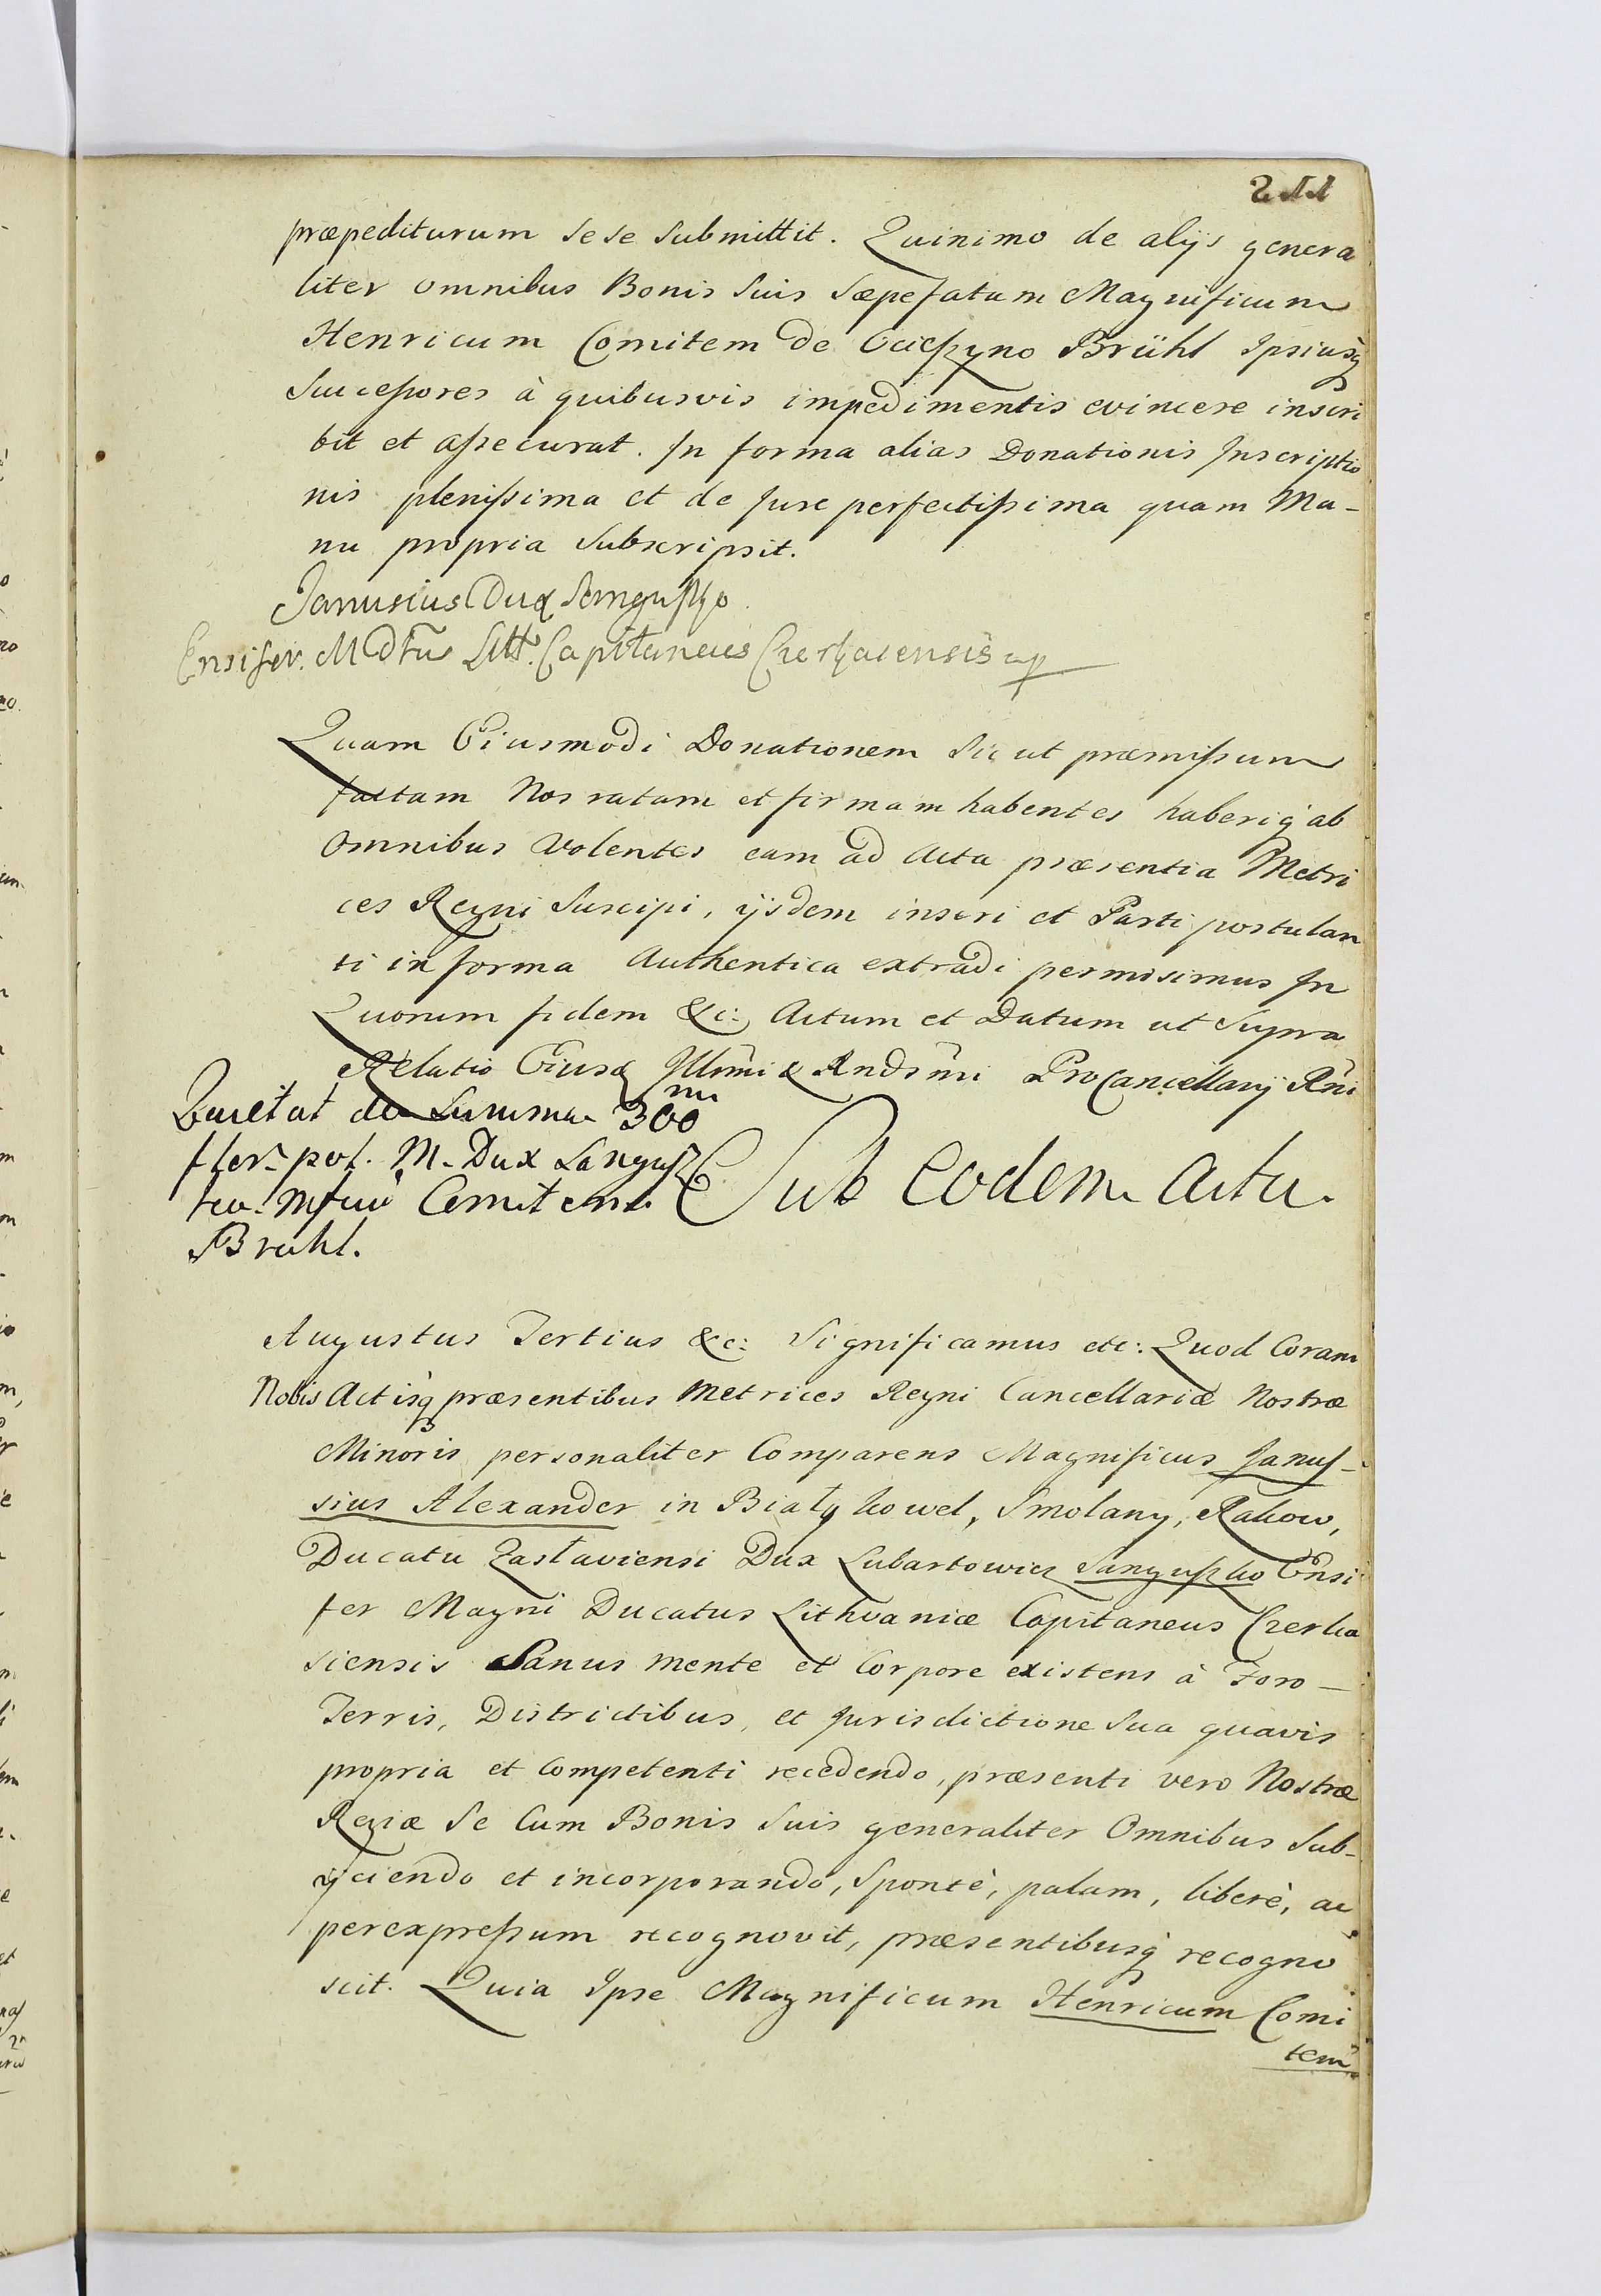 211
præpediturum sese submittit. Quinimo de alijs genera
liter omnibus Bonis Suis Sæpefatum Magnificum
Henricum Comitem de Ocieszyno Brühl Ipsiusq̃
Succeſsores à quibusvis impedimentis evincere inscri
bit et aſsecurat. In forma alias Donationis Inscriptio
nis pleniſsima et de Jure perfectiſsima quam Ma-
nu propria Subscripsit.
Janusius Dux Sanguszko
Ensifer. M. D. Litt. Capitaneus Czerkasiensis mp
Quam Eiusmodi Donationem Sicut præmiſsum
factam Nos ratam et firmam habentes haberiq̃ ab
Omnibus Volentes eam ad Acta præsentia Metri
ces Regni Suscipi, ijsdem inseri et Parti postulan
ti in forma Authentica extradi permisimus In
Quorum fidem &c: Actum et Datum ut Supra
Relatio Eiusd Illm̃i & Rnds̃mi ProCancellarij Rñi
Quietat de Summa 300 m
flor. pol. M. Dux Sangusz
ko Mfcũ Comitem
Brühl.
Sub eodem Actu.
Augustus Tertius &c: Significamus etc: Quod Coram
Nobis Actisq̃ præsentibus Metrices Regni Cancellariæ Nostræ
Minoris personaliter Comparens Magnificus Janus-
sius Alexander in Biały kowel, Smolany, Rakow,
Ducatu Zasłaviensi Dux Lubartowicz Sanguszko Ensi
fer Magni Ducatus Lithvaniæ Capitaneus Czerka
siensis Sanus mente et Corpore existens à Foro-
Terris, Districtibus, et Jurisdictione Sua quavis
propria et Competenti recedendo, præsenti vero Nostræ
Regiæ Se Cum Bonis Suis generaliter Omnibus Sub-
ijciendo et incorporando, Spontè, palam, liberè, ac
per expreſsum recognovit, præsentibusq̃ recogno
scit. Quia Ipse Magnificum Henricum Comi
tem